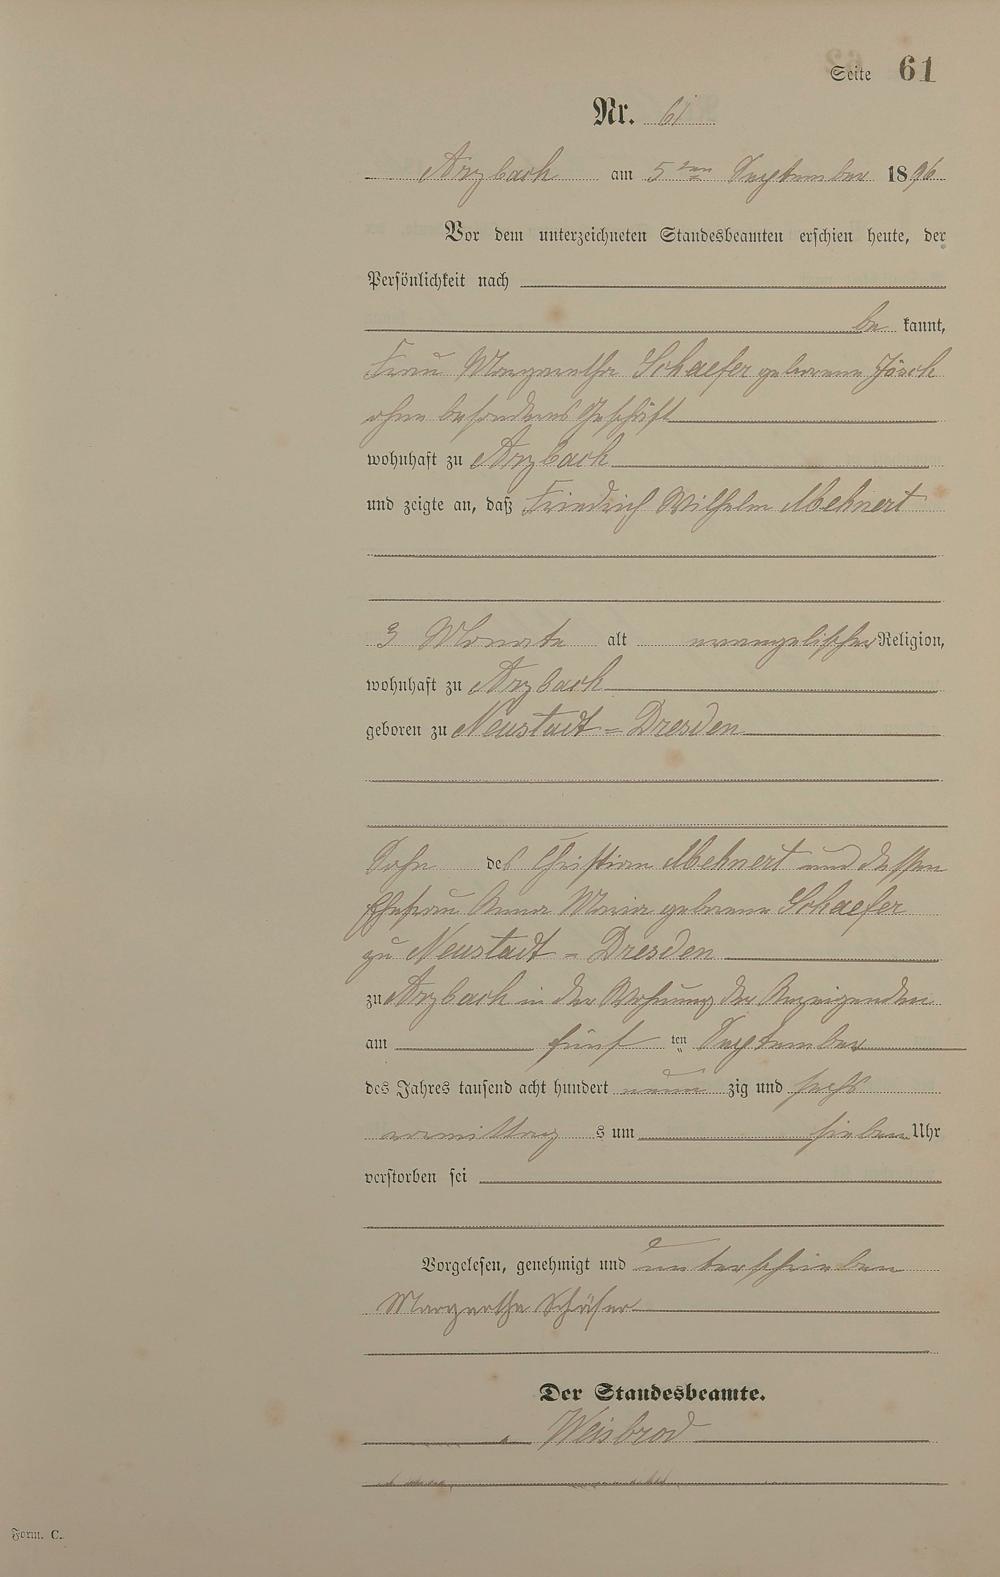 Seite 61
Nr. 61
Arzbach am 5ten September 1896
Vor dem unterzeichneten Standesbeamten erschien heute, der
Persönlichkeit nach
be kannt,
Frau Margaretha Schaefer geborene Jösch
ohne besonderes Geschäft
wohnhaft zu Arzbach
und zeigte an, daß Friedrich Wilhelm Mehnert
3 Monate alt evangelischer Religion,
wohnhaft zu Arzbach
geboren zu Neustadt - Dresden
Sohn des Christian Mehnert und dessen
Ehefrau Anna Maria geborene Schaefer
zu Neustadt - Dresden
zu Arzbach in der Wohnung der Anzeigenden
am fünf ten September
des Jahres tausend acht hundert neun zig und sechs
vormittag s um sieben Uhr
verstorben sei
Vorgelesen, genehmigt und unterschrieben
Margretha Schäfer
Der Standesbeamte.
Weisbrod
Form. C.